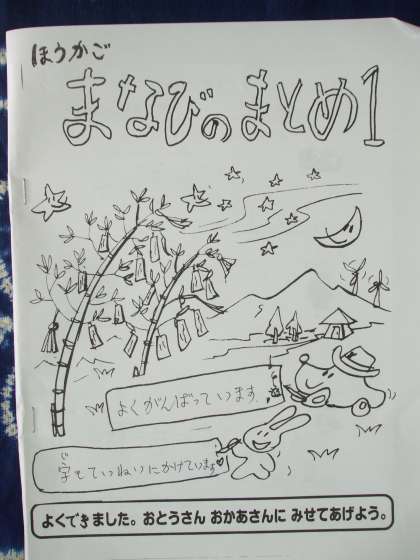 ほうかご
まなびのまとめ1
よくがんばっています
字もていねいにかけています
よくできました。おとうさん おかあさんに みせてあげよう。